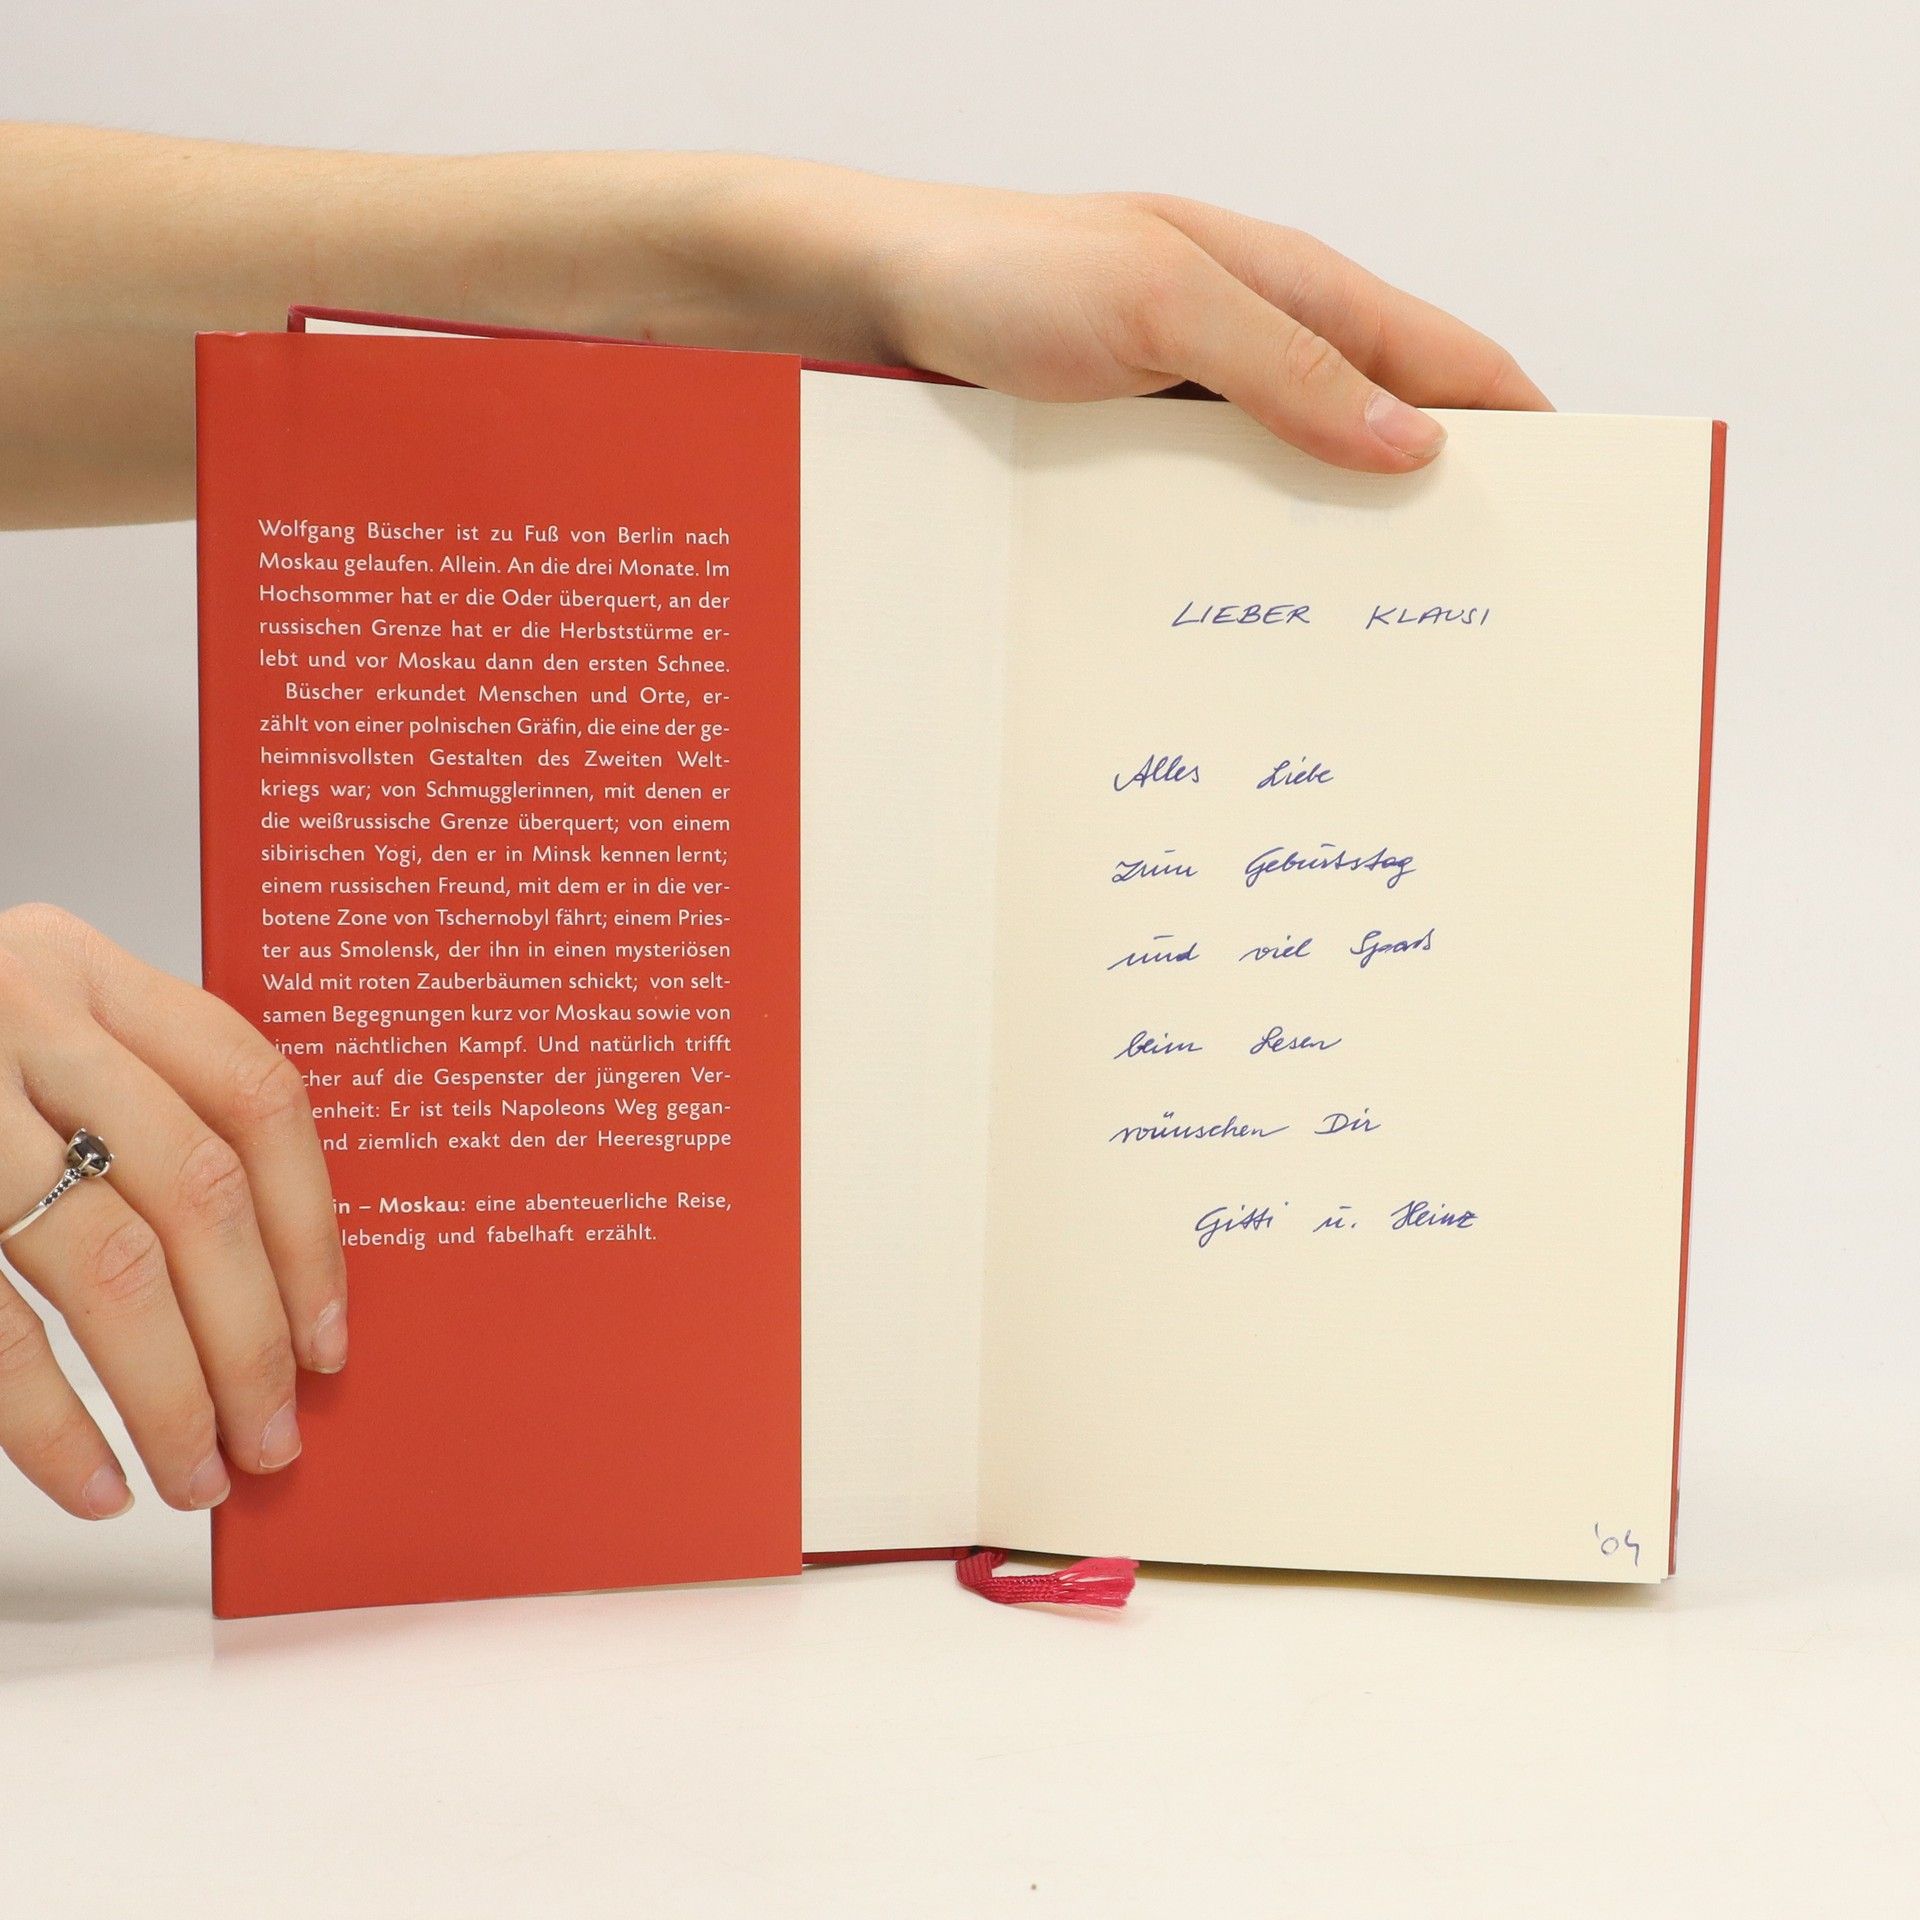 Wolfgang Büscher ist zu Fuß von Berlin nach
Moskau gelaufen. Allein. An die drei Monate. Im
Hochsommer hat er die Oder überquert, an der
russischen Grenze hat er die Herbststürme er-
lebt und vor Moskau dann den ersten Schnee.
Büscher erkundet Menschen und Orte, er-
zählt von einer polnischen Gräfin, die eine der ge-
heimnisvollsten Gestalten des Zweiten Welt-
kriegs war; von Schmugglerinnen, mit denen er
die weißrussische Grenze überquert; von einem
sibirischen Yogi, den er in Minsk kennen lernt;
einem russischen Freund, mit dem er in die ver-
botene Zone von Tschernobyl fährt; einem Pries-
ter aus Smolensk, der ihn in einen mysteriösen
Wald mit roten Zauberbäumen schickt; von selt-
samen Begegnungen kurz vor Moskau sowie von
einem nächtlichen Kampf. Und natürlich trifft
cher auf die Gespenster der jüngeren Ver-
enheit: Er ist teils Napoleons Weg gegan-
nd ziemlich exakt den der Heeresgruppe
in – Moskau: eine abenteuerliche Reise,
lebendig und fabelhaft erzählt.
LIEBER KLAUSI
Alles Liebe
zum Geburtstag
und viel Spaß
beim Lesen
wünschen Dir
Gitti u. Heinz
'04